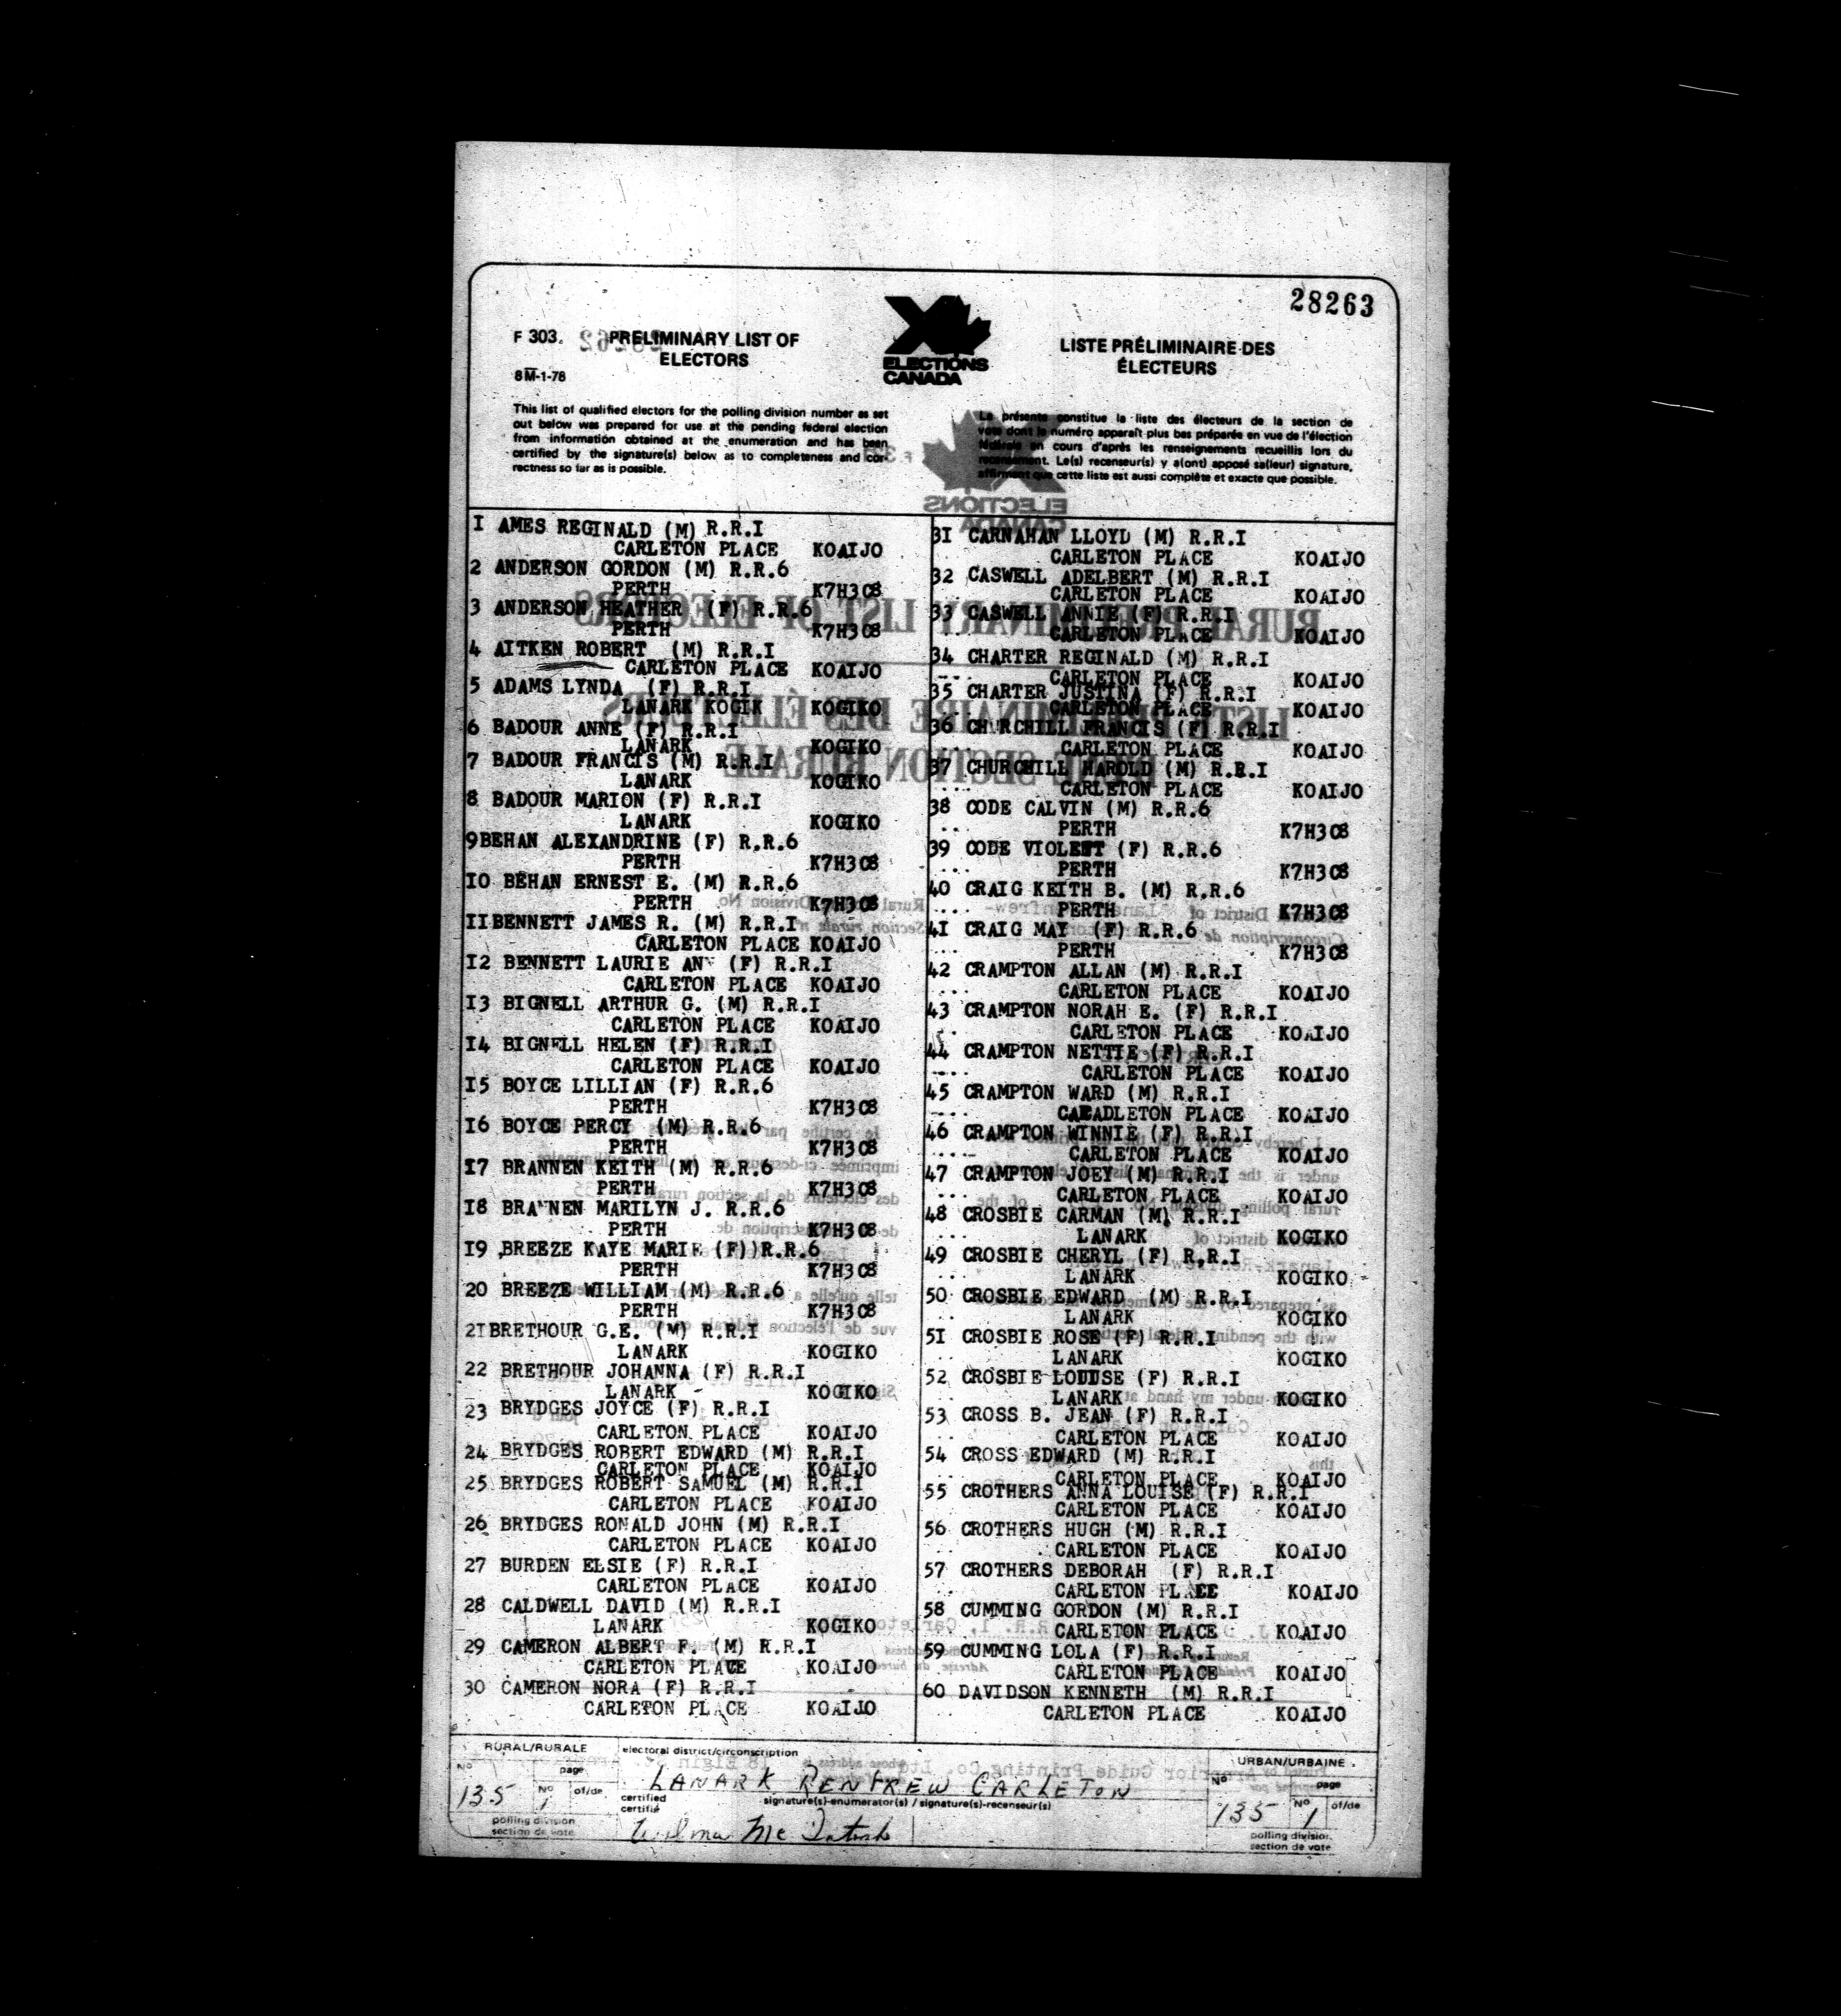 28263
F 303. PRELIMINARY LIST OF
ELECTORS
8M-1-78
ELECTIONS
CANADA
LISTE PRÉLIMINAIRE DES
ÉLECTEURS
This list of qualified electors for the polling division number as set
out below was prepared for use at the pending federal election
from information obtained at the enumeration and has been
certified by the signature(s) below as to completeness and cor-
rectness so far as is possible.
La présente constitue la liste des électeurs de la section de
vote dont le numéro apparaît plus bas préparée en vue de l'élection
fédérale en cours d'après les renseignements recueillis lors du
recensement. Le(s) recenseur(s) y a(ont) apposé sa(leur) signature,
affirmant que cette liste est aussi complète et exacte que possible.
I AMES REGINALD (M) R.R.I
CARLETON PLACE KOAIJO
2 ANDERSON GORDON (M) R.R.6
PERTH K7H3C8
3 ANDERSON HEATHER (F) R.R.6
PERTH K7H3C8
4 AITKEN ROBERT (M) R.R.I
CARLETON PLACE KOAIJO
5 ADAMS LYNDA (F) R.R.I
LANARK KOGIK KOGIKO
6 BADOUR ANNE (F) R.R.I
LANARK KOGIKO
7 BADOUR FRANCIS (M) R.R.I
LANARK KOGIKO
8 BADOUR MARION (F) R.R.I
LANARK KOGIKO
9BEHAN ALEXANDRINE (F) R.R.6
PERTH K7H3C8
IO BEHAN ERNEST E. (M) R.R.6
PERTH K7H3C8
IIBENNETT JAMES R. (M) R.R.I
CARLETON PLACE KOAIJO
I2 BENNETT LAURIE ANN (F) R.R.I
CARLETON PLACE KOAIJO
I3 BIGNELL ARTHUR G. (M) R.R.I
CARLETON PLACE KOAIJO
I4 BIGNELL HELEN (F) R.R.I
CARLETON PLACE KOAIJO
I5 BOYCE LILLIAN (F) R.R.6
PERTH K7H3C8
I6 BOYCE PERCY (M) R.R.6
PERTH K7H3C8
I7 BRANNEN KEITH (M) R.R.6
PERTH K7H3C8
I8 BRANNEN MARILYN J. R.R.6
PERTH K7H3C8
I9 BREEZE KAYE MARIE (F))R.R.6
PERTH K7H3C8
20 BREEZE WILLIAM (M) R.R.6
PERTH K7H3C8
2IBRETHOUR G.E. (M) R.R.I
LANARK KOGIKO
22 BRETHOUR JOHANNA (F) R.R.I
LANARK KOGIKO
23 BRYDGES JOYCE (F) R.R.I
CARLETON PLACE KOAIJO
24 BRYDGES ROBERT EDWARD (M) R.R.I
CARLETON PLACE KOAIJO
25 BRYDGES ROBERT SAMUEL (M) R.R.I
CARLETON PLACE KOAIJO
26 BRYDGES RONALD JOHN (M) R.R.I
CARLETON PLACE KOAIJO
27 BURDEN ELSIE (F) R.R.I
CARLETON PLACE KOAIJO
28 CALDWELL DAVID (M) R.R.I
LANARK KOGIKO
29 CAMERON ALBERT F. (M) R.R.I
CARLETON PLACE KOAIJO
30 CAMERON NORA (F) R.R.I
CARLETON PLACE KOAIJO
3I CARNAHAN LLOYD (M) R.R.I
CARLETON PLACE KOAIJO
32 CASWELL ADELBERT (M) R.R.I
CARLETON PLACE KOAIJO
33 CASWELL ANNIE (F) R.R.I
CARLETON PLACE KOAIJO
34 CHARTER REGINALD (M) R.R.I
CARLETON PLACE KOAIJO
35 CHARTER JUSTINA (F) R.R.I
CARLETON PLACE KOAIJO
36 CHURCHILL FRANCIS (F) R.R.I
CARLETON PLACE KOAIJO
37 CHURCHILL HAROLD (M) R.R.I
CARLETON PLACE KOAIJO
38 CODE CALVIN (M) R.R.6
PERTH K7H3C8
39 CODE VIOLET (F) R.R.6
PERTH K7H3C8
40 CRAIG KEITH B. (M) R.R.6
PERTH K7H3C8
4I CRAIG MAY (F) R.R.6
PERTH K7H3C8
42 CRAMPTON ALLAN (M) R.R.I
CARLETON PLACE KOAIJO
43 CRAMPTON NORAH E. (F) R.R.I
CARLETON PLACE KOAIJO
44 CRAMPTON NETTIE (F) R.R.I
CARLETON PLACE KOAIJO
45 CRAMPTON WARD (M) R.R.I
CARADLETON PLACE KOAIJO
46 CRAMPTON WINNIE (F) R.R.I
CARLETON PLACE KOAIJO
47 CRAMPTON JOEY (M) R.R.I
CARLETON PLACE KOAIJO
48 CROSBIE CARMAN (M) R.R.I
LANARK KOGIKO
49 CROSBIE CHERYL (F) R.R.I
LANARK KOGIKO
50 CROSBIE EDWARD (M) R.R.I
LANARK KOGIKO
5I CROSBIE ROSE (F) R.R.I
LANARK KOGIKO
52 CROSBIE LOUISE (F) R.R.I
LANARK KOGIKO
53 CROSS B. JEAN (F) R.R.I
CARLETON PLACE KOAIJO
54 CROSS EDWARD (M) R.R.I
CARLETON PLACE KOAIJO
55 CROTHERS ANNA LOUISE (F) R.R.I
CARLETON PLACE KOAIJO
56 CROTHERS HUGH (M) R.R.I
CARLETON PLACE KOAIJO
57 CROTHERS DEBORAH (F) R.R.I
CARLETON PLACE KOAIJO
58 CUMMING GORDON (M) R.R.I
CARLETON PLACE KOAIJO
59 CUMMING LOLA (F) R.R.I
CARLETON PLACE KOAIJO
60 DAVIDSON KENNETH (M) R.R.I
CARLETON PLACE KOAIJO
RURAL/RURALE
No page
135 No 1 of/de
polling division
section de vote
electoral district/circonscription
LANARK RENFREW CARLETON
certified
certifié
signature(s)-enumerator(s) / signature(s)-recenseur(s)
Wilma McIntosh
URBAN/URBAINE
No page
135 No 1 of/de
polling division
section de vote